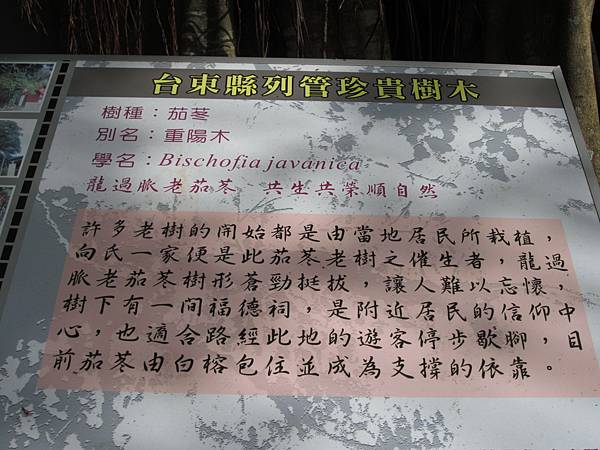 台東縣列管珍貴樹木
樹種：茄苳
別名：重陽木
學名：Bischofia javanica
龍過脈老茄苳 共生共榮順自然
許多老樹的開始都是由當地居民所栽植，
向氏一家便是此茄苳老樹之催生者，龍過
脈老茄苳樹形蒼勁挺拔，讓人難以忘懷，
樹下有一間福德祠，是附近居民的信仰中
心，也適合路經此地的遊客停步歇腳，目
前茄苳由白榕包住並成為支撐的依靠。